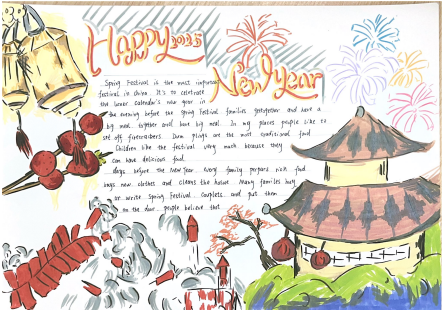 Happy 2025
New Year
Spring Festival is the most important
festival in china. It's to celebrate
the lunar calendar's new year in
the evening before the Spring Festival families getogether and have a
big meal. together and have big meal. In my places people like to
set off firecrackers. Dum plings are the most traditional food
Children like the festival very much because they
can have delicious food.
days before the New year. every family prepars rich food
buys new clothes and cleans the house. Many familes buy
or write Spring Festival couplets and put them
on the door. people believe that